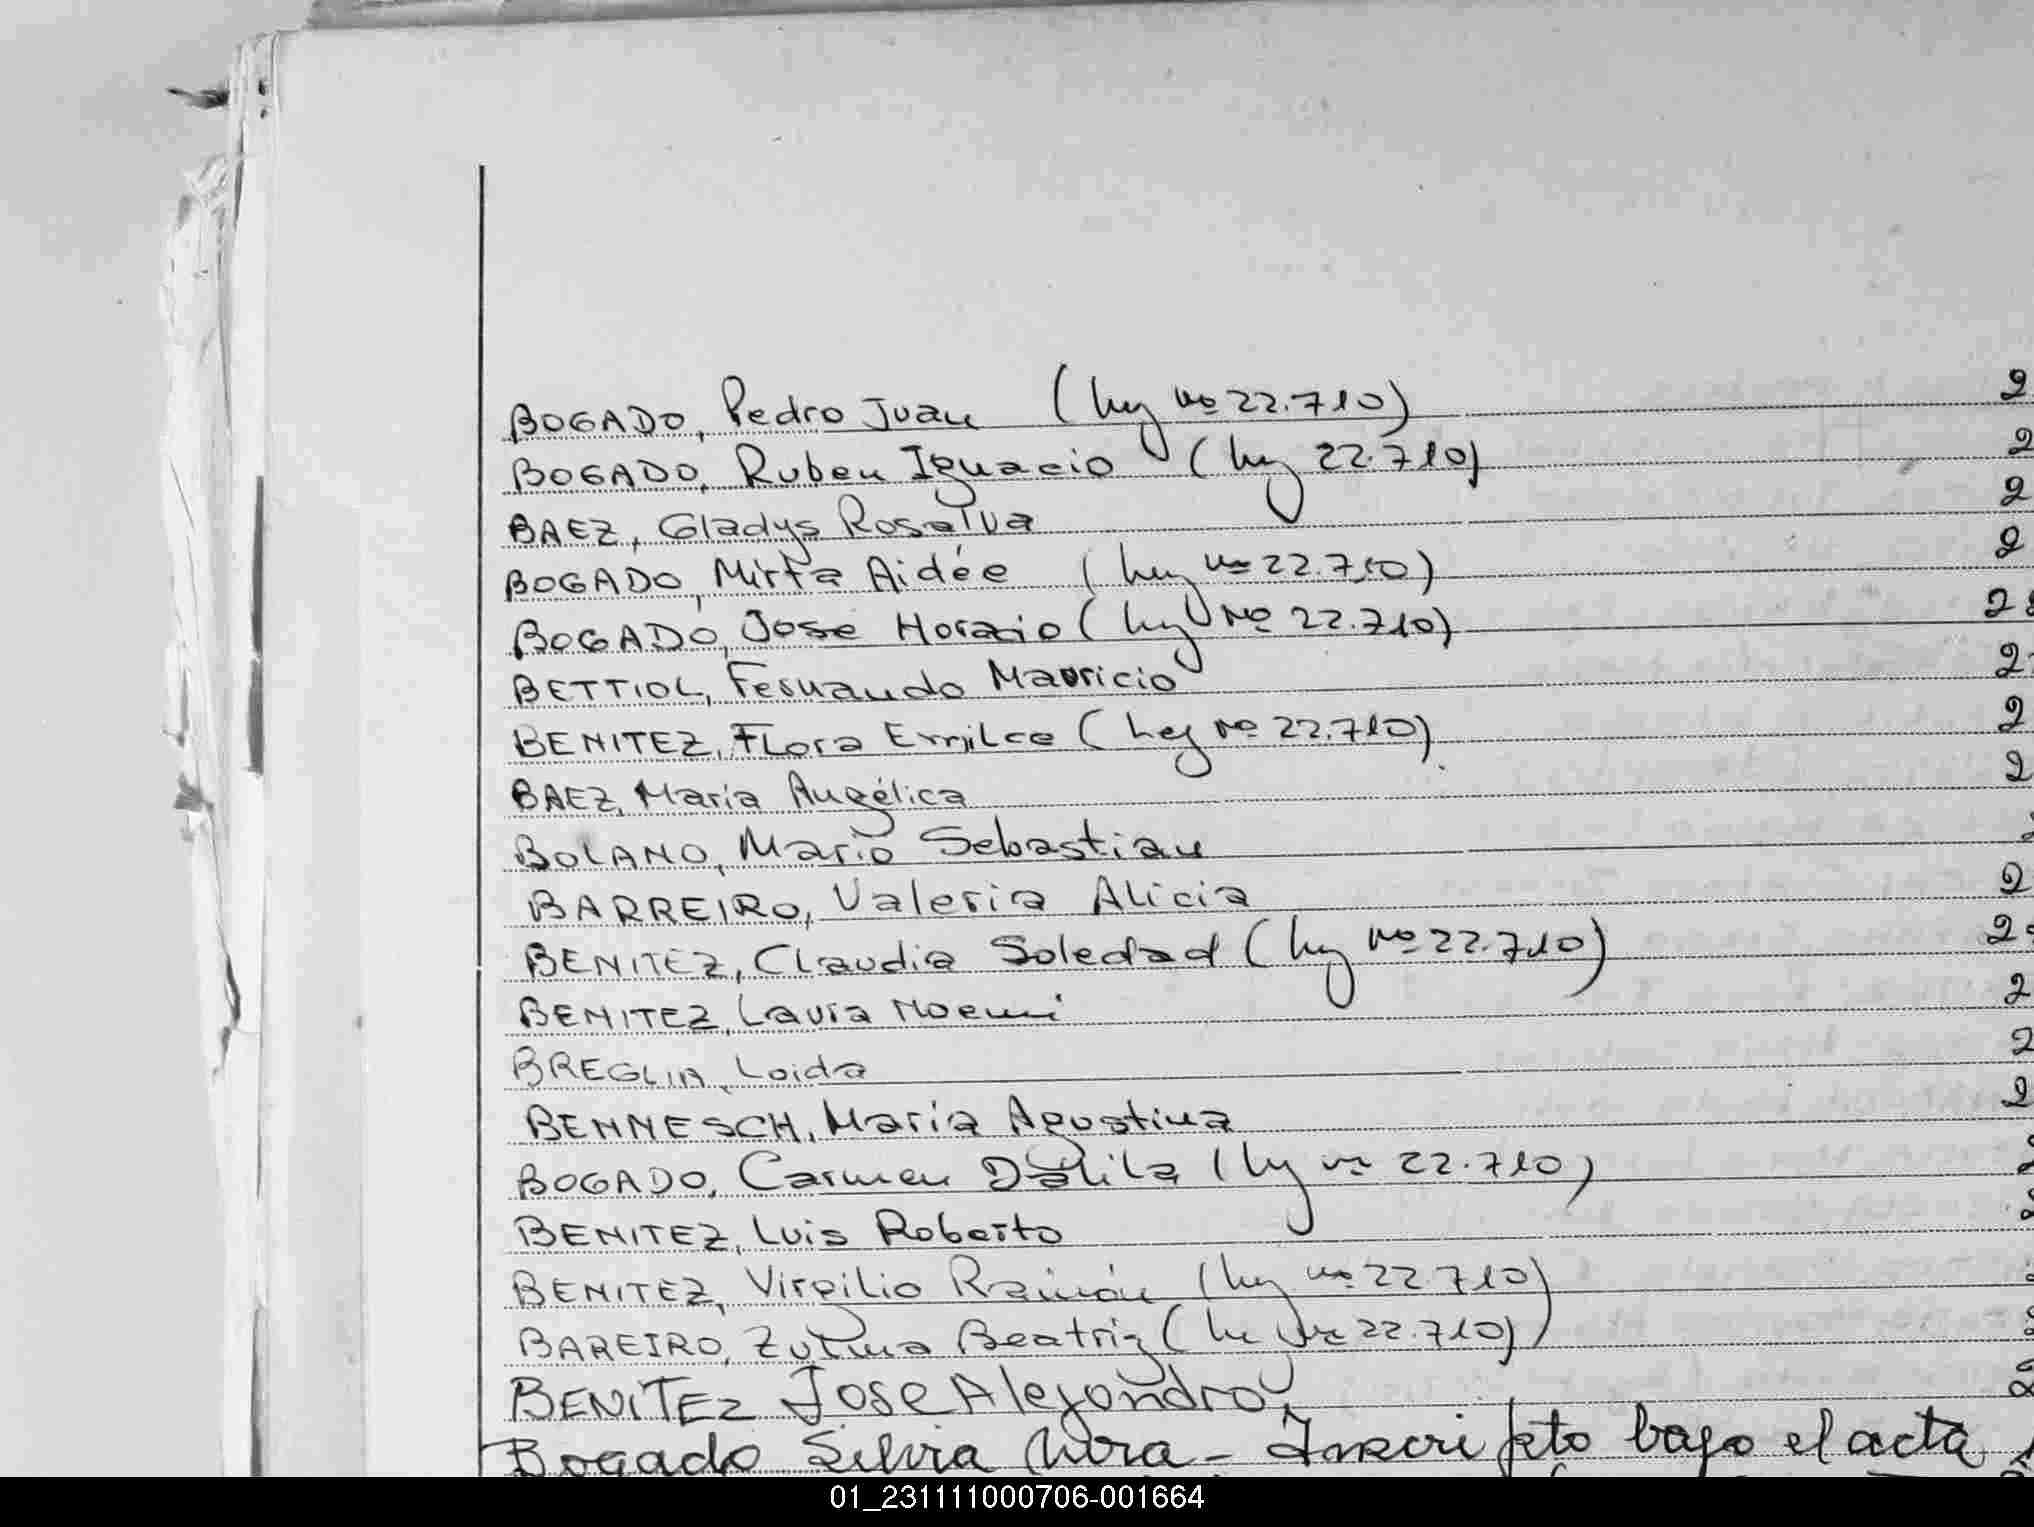 BOGADO, Pedro Juan (ley nº 22.710) 2
BOGADO, Ruben Ignacio (ley 22.710) 2
BAEZ, Gladys Rosalva 2
BOGADO, Mirta Aidée (ley nº 22.710) 2
BOGADO, Jose Horacio (ley Nº 22.710) 2
BETTIOL, Fernando Mauricio 2
BENITEZ, Flora Ermilce (ley Nº 22.710) 2
BAEZ, María Angélica 2
BOLANO, Mario Sebastian
BARREIRO, Valeria Alicia 2
BENITEZ, Claudia Soledad (ley nº 22.710) 2
BENITEZ, Laura Noemí 2
BREGLIA, Loida 2
BENNESCH, María Agustina 2
BOGADO, Carmen Dalila (ley nº 22.710)
BENITEZ, Luis Roberto
BENITEZ, Virgilio Ramón (ley nº 22.710)
BAREIRO, Zulma Beatriz (ley nº 22.710)
BENITEZ Jose Alejandro 2
Bogado Silvia Nora - Inscripto bajo el acta
01_231111000706-001664